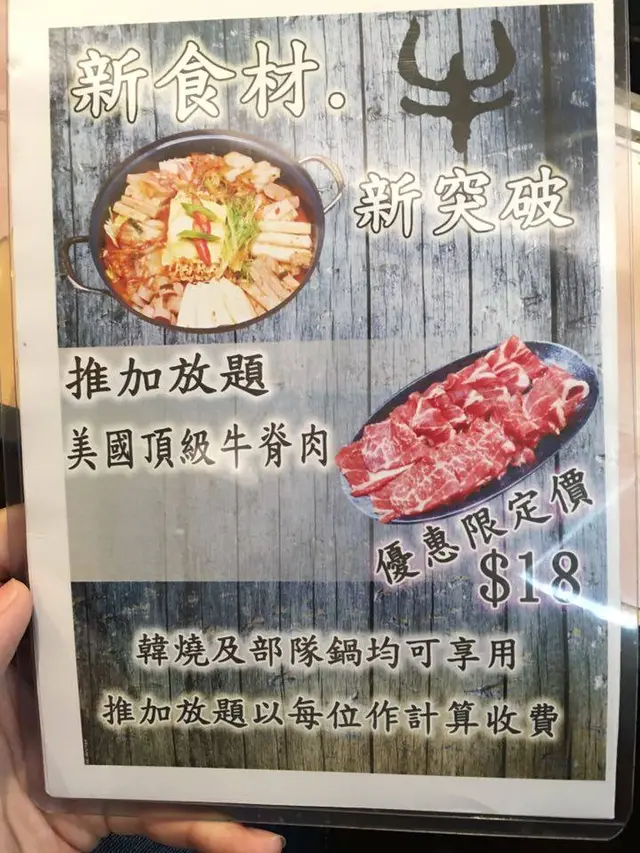 新食材.
新突破
推加放題
美國頂級牛脊肉
優惠限定價
$18
韓燒及部隊鍋均可享用
推加放題以每位作計算收費